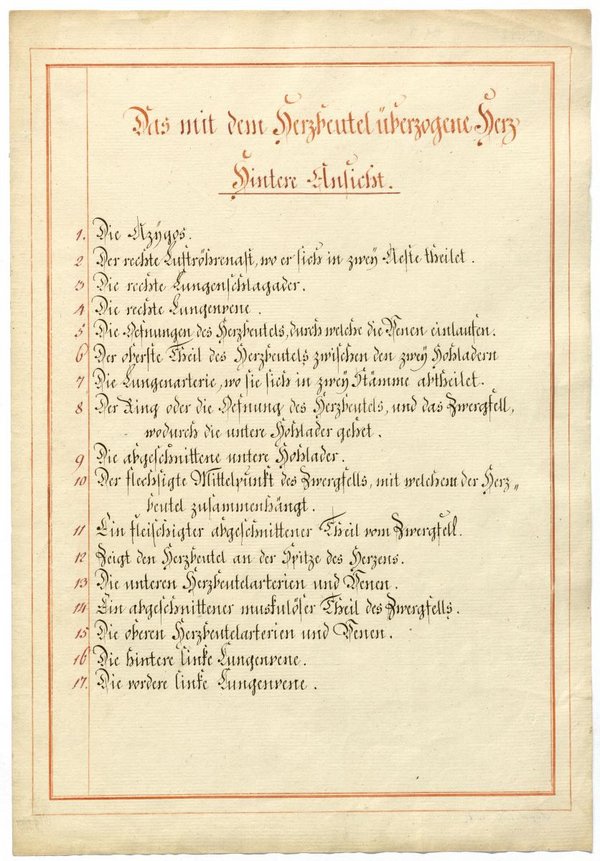 Das mit dem Herzbeutel überzogene Herz
Hintere Ansicht.
1. Die Azygos.
2 Der rechte Luftröhrenast, wo er sich in zwey Aeste theilet.
3 Die rechte Lungenschlagader.
4 Die rechte Lungenvene.
5 Die Oefnungen des Herzbeutels, durch welche die Venen einlaufen.
6 Der oberste Theil des Herzbeutels zwischen den zwey Hohladern
7 Die Lungenarterie, wo sie sich in zwey Stämme abtheilet.
8 Der Ring oder die Oefnung des Herzbeutels, und das Zwergfell,
wodurch die untere Hohlader gehet.
9 Die abgeschnittene untere Hohlader.
10 Der flechsigte Mittelpunkt des Zwergfells, mit welchem der Herz„
beutel zusammenhängt.
11 Ein fleischigter abgeschnittener Theil vom Zwergfell.
12 Zeigt den Herzbeutel an der Spitze des Herzens.
13 Die unteren Herzbeutelarterien und Venen.
14 Ein abgeschnittener muskulöser Theil des Zwergfells.
15 Die oberen Herzbeutelarterien und Venen.
16 Die hintere linke Lungenvene.
17. Die vordere linke Lungenvene.